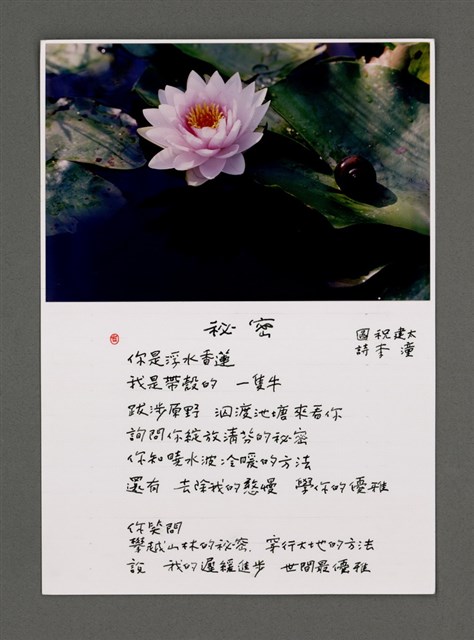 秘密
圖 祝建太
詩 李潼
你是浮水香蓮
我是帶殼的 一隻牛
跋涉原野 泅渡池塘來看你
詢問你綻放清芬的秘密
你知曉水波冷暖的方法
還有 去除我的憨慢 學你的優雅
你笑問
攀越山林的秘密、穿行大地的方法
說 我的遲緩進步 世間最優雅